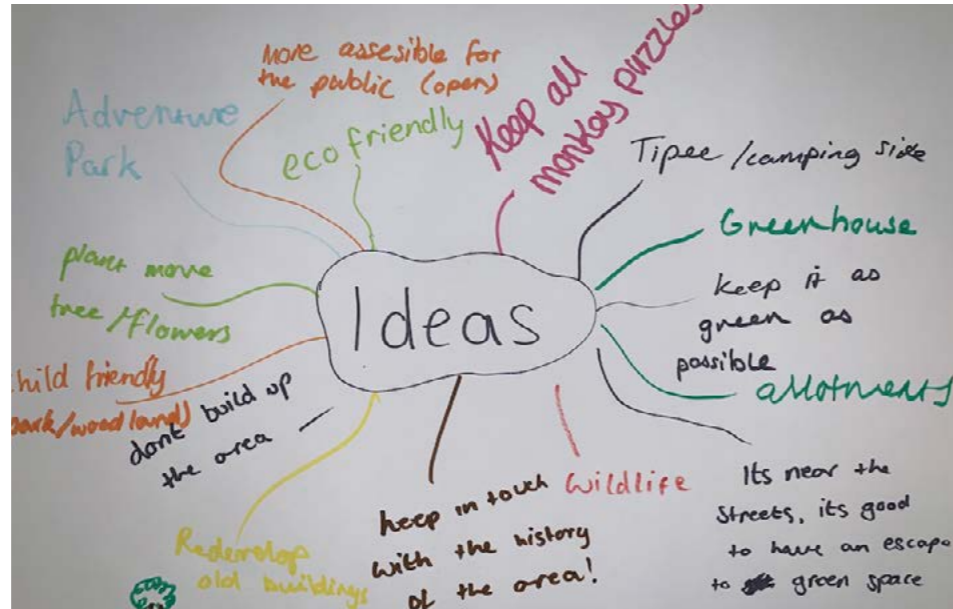 More assesible for
the public (open)
Adventure
Park
eco friendly
Keep all
monkey puzzles
Tipee/camping side
Greenhouse
keep it as
green as
possible
allotments
Its near the
streets, its good
to have an escape
to green space
Wildlife
keep in touch
with the history
of the area!
Redevelop
old buildings
dont build up
the area
child friendly
park/woodland)
plant more
tree/flowers
Ideas